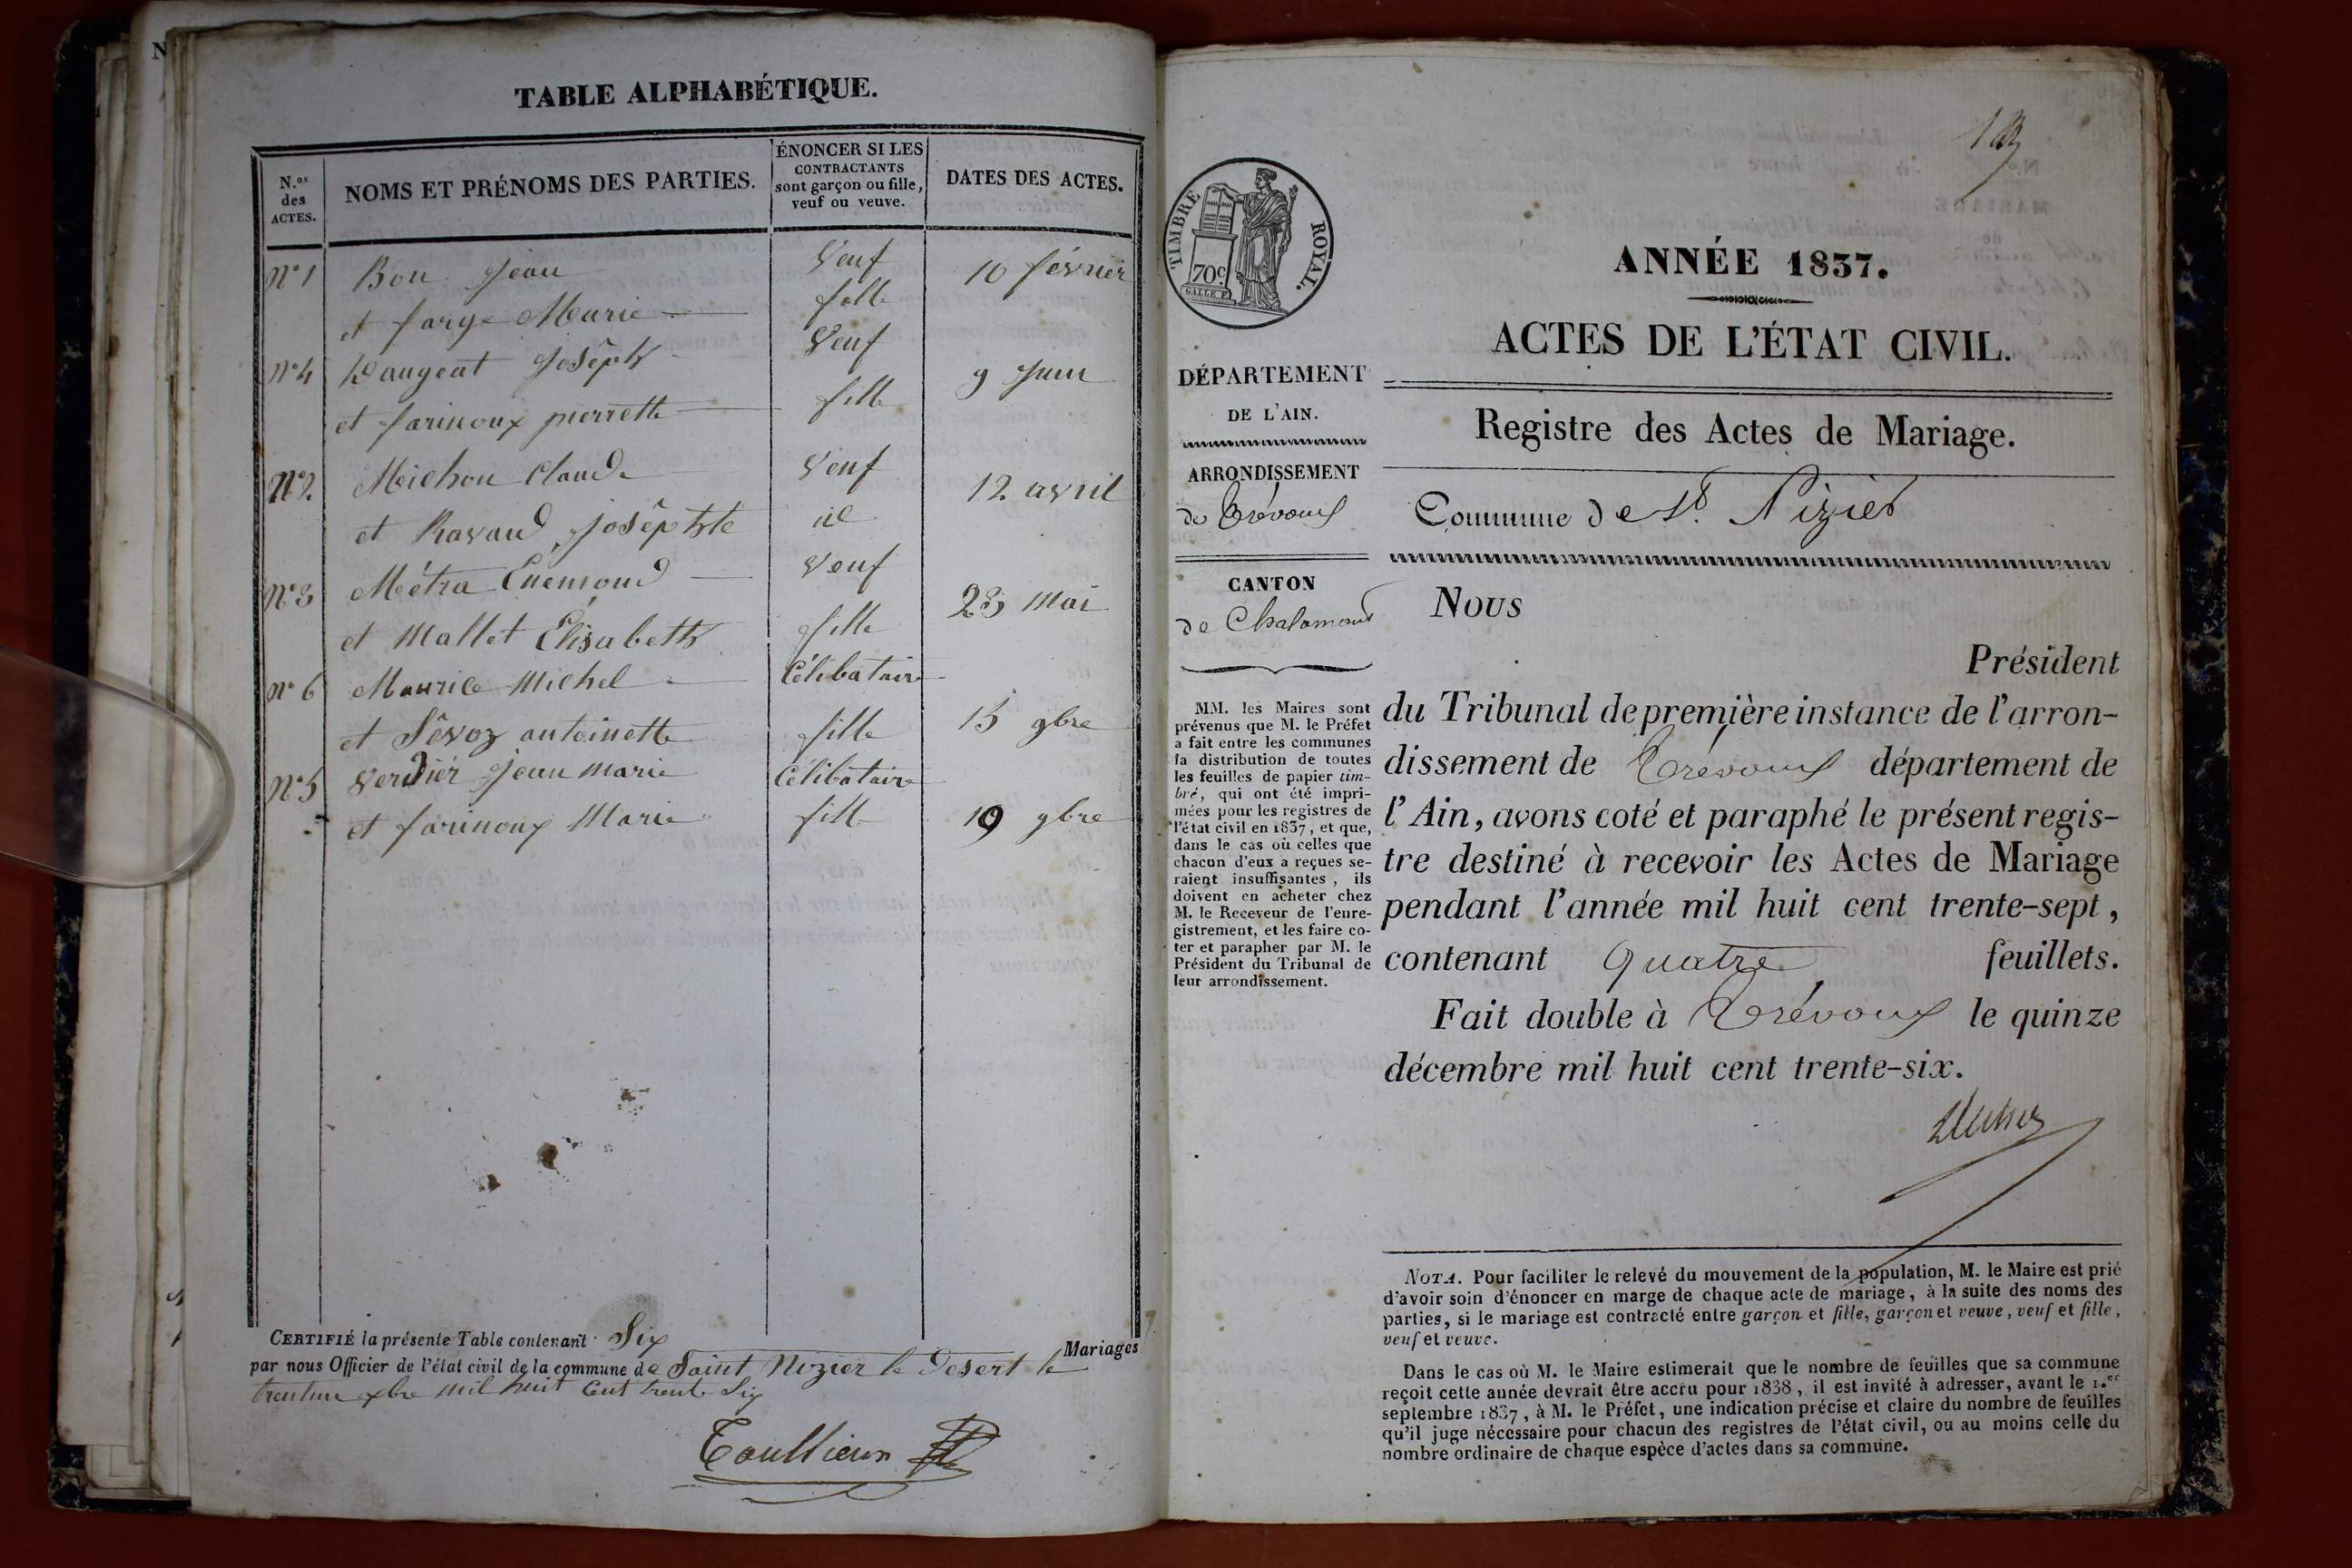 TABLE ALPHABÉTIQUE.
N.os des ACTES.
NOMS ET PRÉNOMS DES PARTIES.
ÉNONCER SI LES
CONTRACTANTS
sont garçon ou fille,
veuf ou veuve.
DATES DES ACTES.
N°1 Bon Jean Veuf 10 février
et farge Marie fille
N°4 Dangeat Josêph Veuf 9 Juin
et farinoux pierrette fille
N°2. Michon Claude Veuf 12 avril
et Ravaud Josêphte id
N°3 Métra Enemond Veuf 23 Mai
et Mallet Élisabeth fille
N°6 Maurice Michel Célibataire
et Sêvoz antoinette fille 15 9bre
N°5 Verdier Jean Marie Célibataire
et farinoux Marie fille 19 9bre
CERTIFIÉ la présente Table contenant Six Mariages
par nous Officier de l'état civil de la commune de Saint Nizier le Desert le
trentun xbre mil huit Cent trente Six
TIMBRE ROYAL.
70c.
ANNÉE 1837.
ACTES DE L'ÉTAT CIVIL.
DÉPARTEMENT
DE L'AIN.
Registre des Actes de Mariage.
ARRONDISSEMENT
de Trévoux
Commune de St. Nizier
CANTON
de Chalamont
MM. les Maires sont
prévenus que M. le Préfet
a fait entre les communes
la distribution de toutes
les feuilles de papier tim-
bré, qui ont été impri-
mées pour les registres de
l'état civil en 1837, et que,
dans le cas où celles que
chacun d'eux a reçues se-
raient insuffisantes, ils
doivent en acheter chez
M. le Receveur de l'enre-
gistrement, et les faire co-
ter et parapher par M. le
Président du Tribunal de
leur arrondissement.
Nous
Président
du Tribunal de première instance de l'arron-
dissement de Trévoux département de
l'Ain, avons coté et paraphé le présent regis-
tre destiné à recevoir les Actes de Mariage
pendant l'année mil huit cent trente-sept,
contenant quatre feuillets.
Fait double à Trévoux le quinze
décembre mil huit cent trente-six.
NOTA. Pour faciliter le relevé du mouvement de la population, M. le Maire est prié
d'avoir soin d'énoncer en marge de chaque acte de mariage, à la suite des noms des
parties, si le mariage est contracté entre garçon et fille, garçon et veuve, veuf et fille,
veuf et veuve.
Dans le cas où M. le Maire estimerait que le nombre de feuilles que sa commune
reçoit cette année devrait être accru pour 1838, il est invité à adresser, avant le 1.er
septembre 1837, à M. le Préfet, une indication précise et claire du nombre de feuilles
qu'il juge nécessaire pour chacun des registres de l'état civil, ou au moins celle du
nombre ordinaire de chaque espèce d'actes dans sa commune.